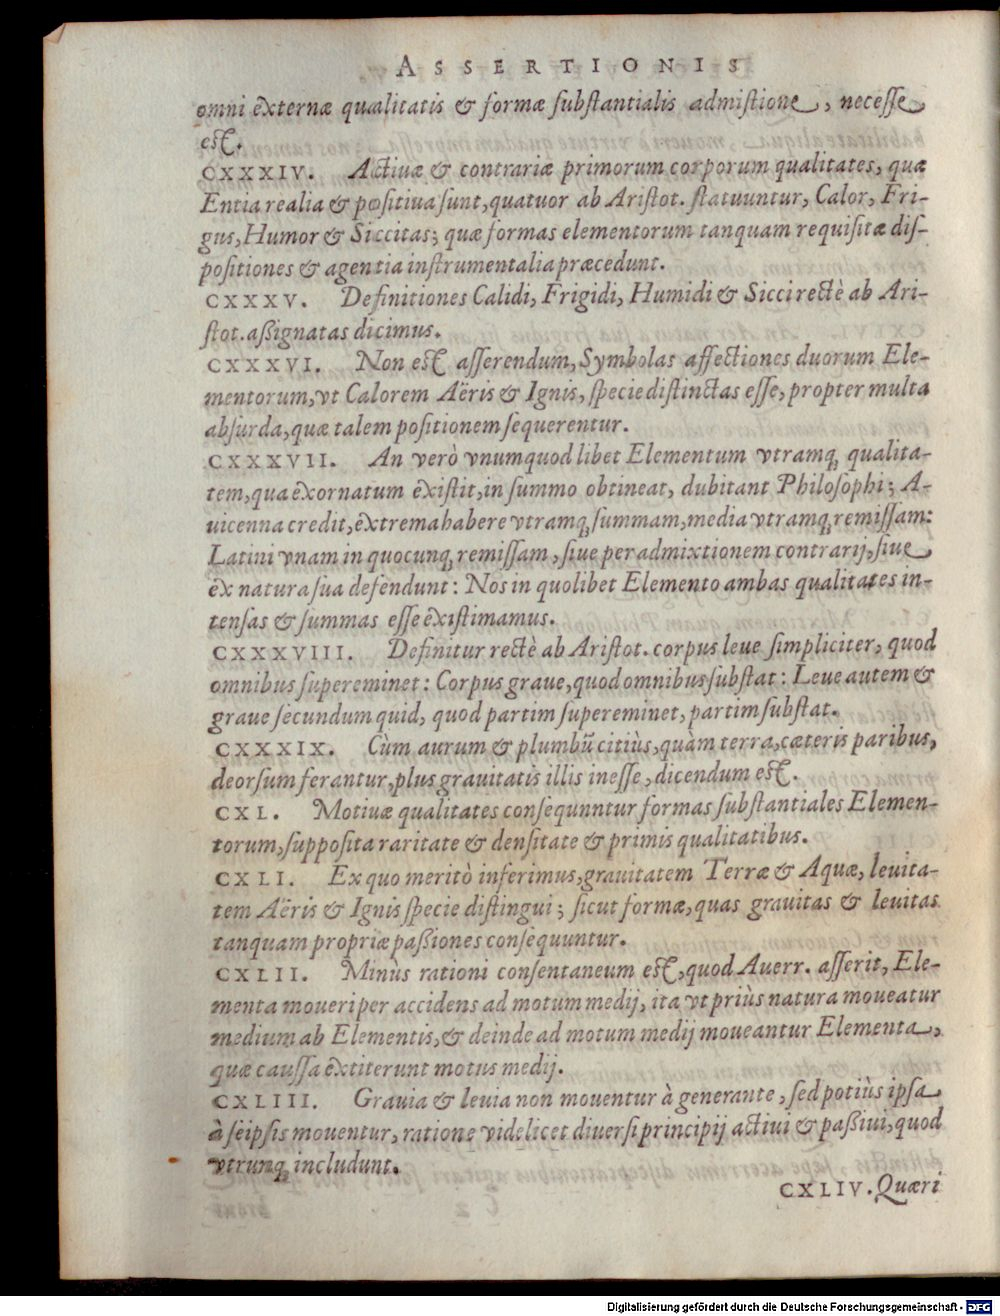 ASSERTIONIS
omni externæ qualitatis & formæ substantialis admistione, necesse
est.
CXXXIV. Actiuæ & contrariæ primorum corporum qualitates, quæ
Entia realia & positiua sunt, quatuor ab Aristot. statuuntur, Calor, Fri-
gus, Humor & Siccitas; quæ formas elementorum tanquam requisitæ dis-
positiones & agentia instrumentalia præcedunt.
CXXXV. Definitiones Calidi, Frigidi, Humidi & Sicci rectè ab Ari-
stot. aßignatas dicimus.
CXXXVI. Non est asserendum, Symbolas affectiones duorum Ele-
mentorum, vt Calorem Aëris & Ignis, specie distinctas esse, propter multa
absurda, quæ talem positionem sequerentur.
CXXXVII. An verò vnumquodlibet Elementum vtramq; qualita-
tem, qua exornatum existit, in summo obtineat, dubitant Philosophi; A-
uicenna credit, extrema habere vtramq; summam, media vtramq; remissam:
Latini vnam in quocunq; remissam, siue per admixtionem contrarij, siue
ex natura sua defendunt: Nos in quolibet Elemento ambas qualitates in-
tensas & summas esse existimamus.
CXXXVIII. Definitur rectè ab Aristot. corpus leue simpliciter, quod
omnibus supereminet: Corpus graue, quod omnibus substat: Leue autem &
graue secundum quid, quod partim supereminet, partim substat.
CXXXIX. Cùm aurum & plumbũ citiùs, quàm terra, cæteris paribus,
deorsum ferantur, plus grauitatis illis inesse, dicendum est.
CXL. Motiuæ qualitates consequnntur formas substantiales Elemen-
torum, supposita raritate & densitate & primis qualitatibus.
CXLI. Ex quo meritò inferimus, grauitatem Terræ & Aquæ, leuita-
tem Aëris & Ignis specie distingui; sicut formæ, quas grauitas & leuitas
tanquam propriæ paßiones consequuntur.
CXLII. Minùs rationi consentaneum est, quod Auerr. asserit, Ele-
menta moueri per accidens ad motum medij, ita vt priùs natura moueatur
medium ab Elementis, & deinde ad motum medij moueantur Elementa,
quæ caussa extiterunt motus medij.
CXLIII. Grauia & leuia non mouentur à generante, sed potiùs ipsa
à seipsis mouentur, ratione videlicet diuersi principij actiui & paßiui, quod
vtrunq; includunt.
CXLIV. Quæri
Digitalisierung gefördert durch die Deutsche Forschungsgemeinschaft - DFG